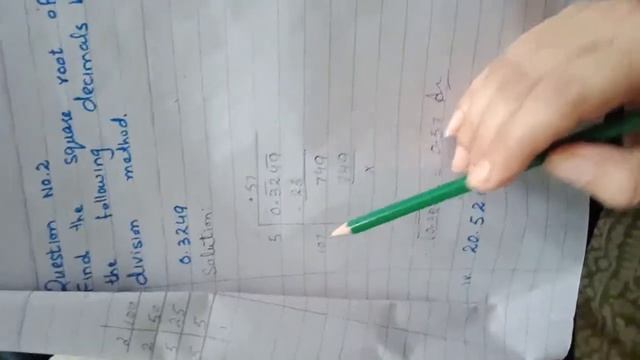 Question No.2
Find the square root of
the following decimals
division method.
0.3249
Solution:
.57
5 0.3249
.25
107 749
749
x
= 0.57 Ans
20.52
2 100
2 50
5 25
5 5
1